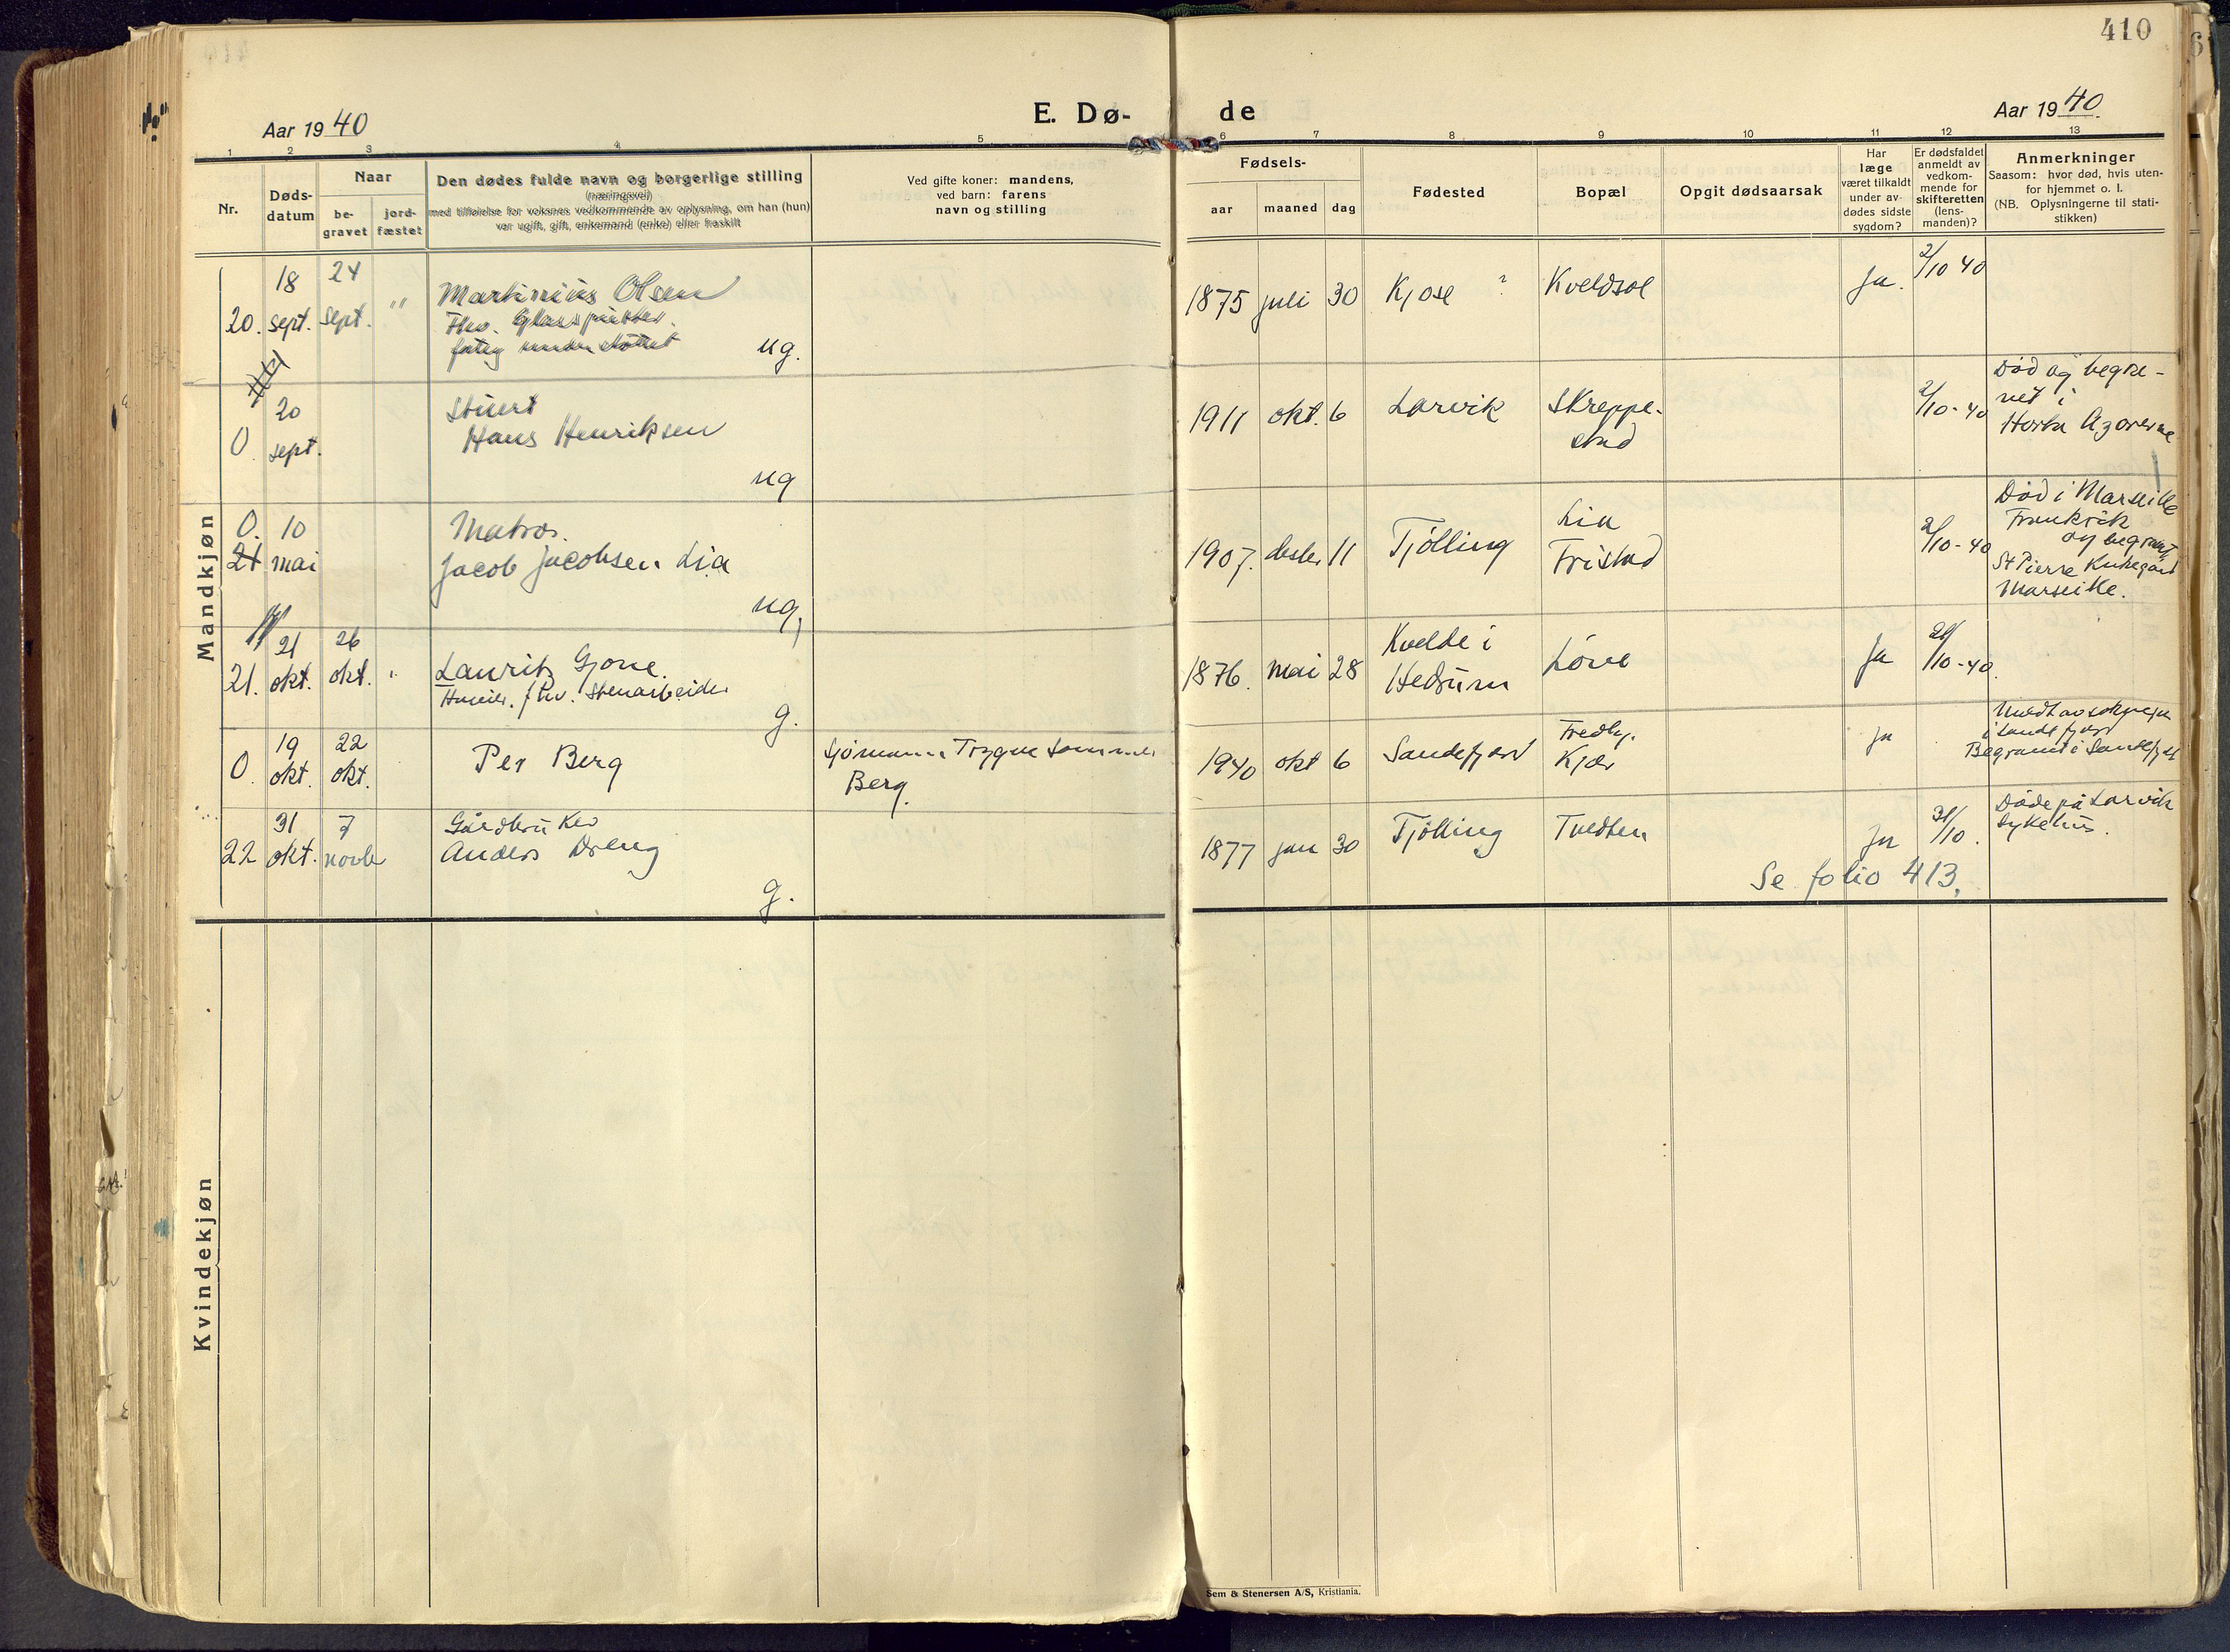 410
Aar 1940
E. Dø-
de
Aar 1940.
1 2 3 4 5 6 7 8 9 10 11 12 13
Nr.
Døds-
datum
Naar
be-
gravet
jord-
fæstet
Den dødes fulde navn og borgerlige stilling
(næringsvei)
med tilføielse for voksnes vedkommende av oplysning, om han (hun)
var ugift, gift, enkemand (enke) eller fraskilt
Ved gifte koner: mandens,
ved barn: farens
navn og stilling
Fødsels-
aar maaned dag
Fødested
Bopæl
Opgit dødsaarsak
Har
læge
været tilkaldt
under av-
dødes sidste
sygdom?
Er dødsfaldet
anmeldt av
vedkom-
mende for
skifteretten
(lens-
manden)?
Anmerkninger
Saasom: hvor død, hvis uten-
for hjemmet o. l.
(NB. Oplysningerne til stati-
stikken)
Mandkjøn
20. 18 sept. 24 sept. "
Martinius Olsen
Fhv. Glasspuster.
fattig understøttet
ug.
1875 juli 30 Kjose ? Kveldsol Ja. 2/10 40
0. 20 sept.
Stuert
Hans Henriksen
ug
1911 okt. 6 Larvik Skreppe-
stad
2/10-40
Død og begra-
vet i
Horta Azorerne
0. 21 10 mai
Matros.
Jacob Jacobsen Lia
ug,
1907. desbr 11 Tjølling Lia
Fristad
2/10-40
Død i Marseille
Frankrik
og begravet
St Pierre Kirkegård
Marseille.
21. 21 okt. 26 okt. "
Lauritz Gjone.
Huseier. fhv. Stenarbeider
g.
1876. mai 28 Kvelde i
Hedrum
Løve Ja 21/10-40.
0. 19 okt. 22 okt.
Per Berg
Sjømann Trygve
Berg.
1940 okt 6 Sandefjord
Fredly.
Kjær
Ja
i Sandefjord
Begravet i Sandefjord
22 31 okt. 7 novbr
Gårdbruker
Anders Dreng
g.
1877 jan 30 Tjølling Tvedten Ja 31/10.
Døde på Larvik
Sykehus.
Se folio 413.
Kvindekjøn
Sem & Stenersen A/S, Kristiania.